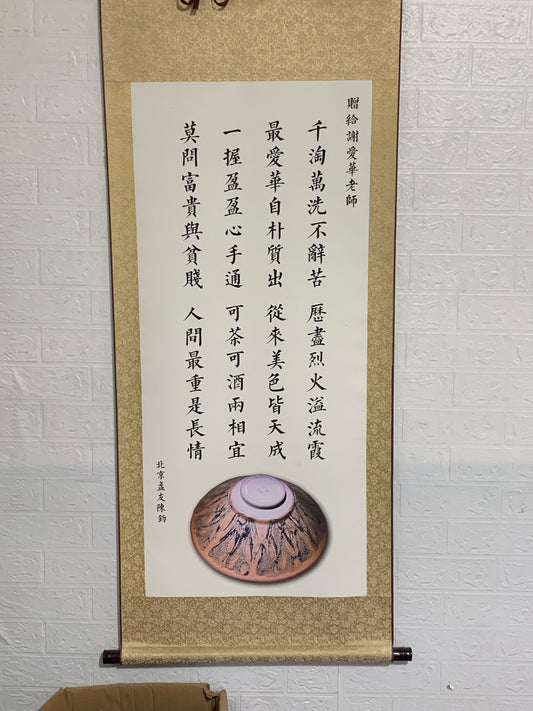 贈給謝愛華老師
千淘萬洗不辭苦 歷盡烈火溢流霞
最愛華自朴質出 從來美色皆天成
一握盈盈心手通 可茶可酒兩相宜
莫問富貴與貧賤 人間最重是長情
北京盞友陳鈞